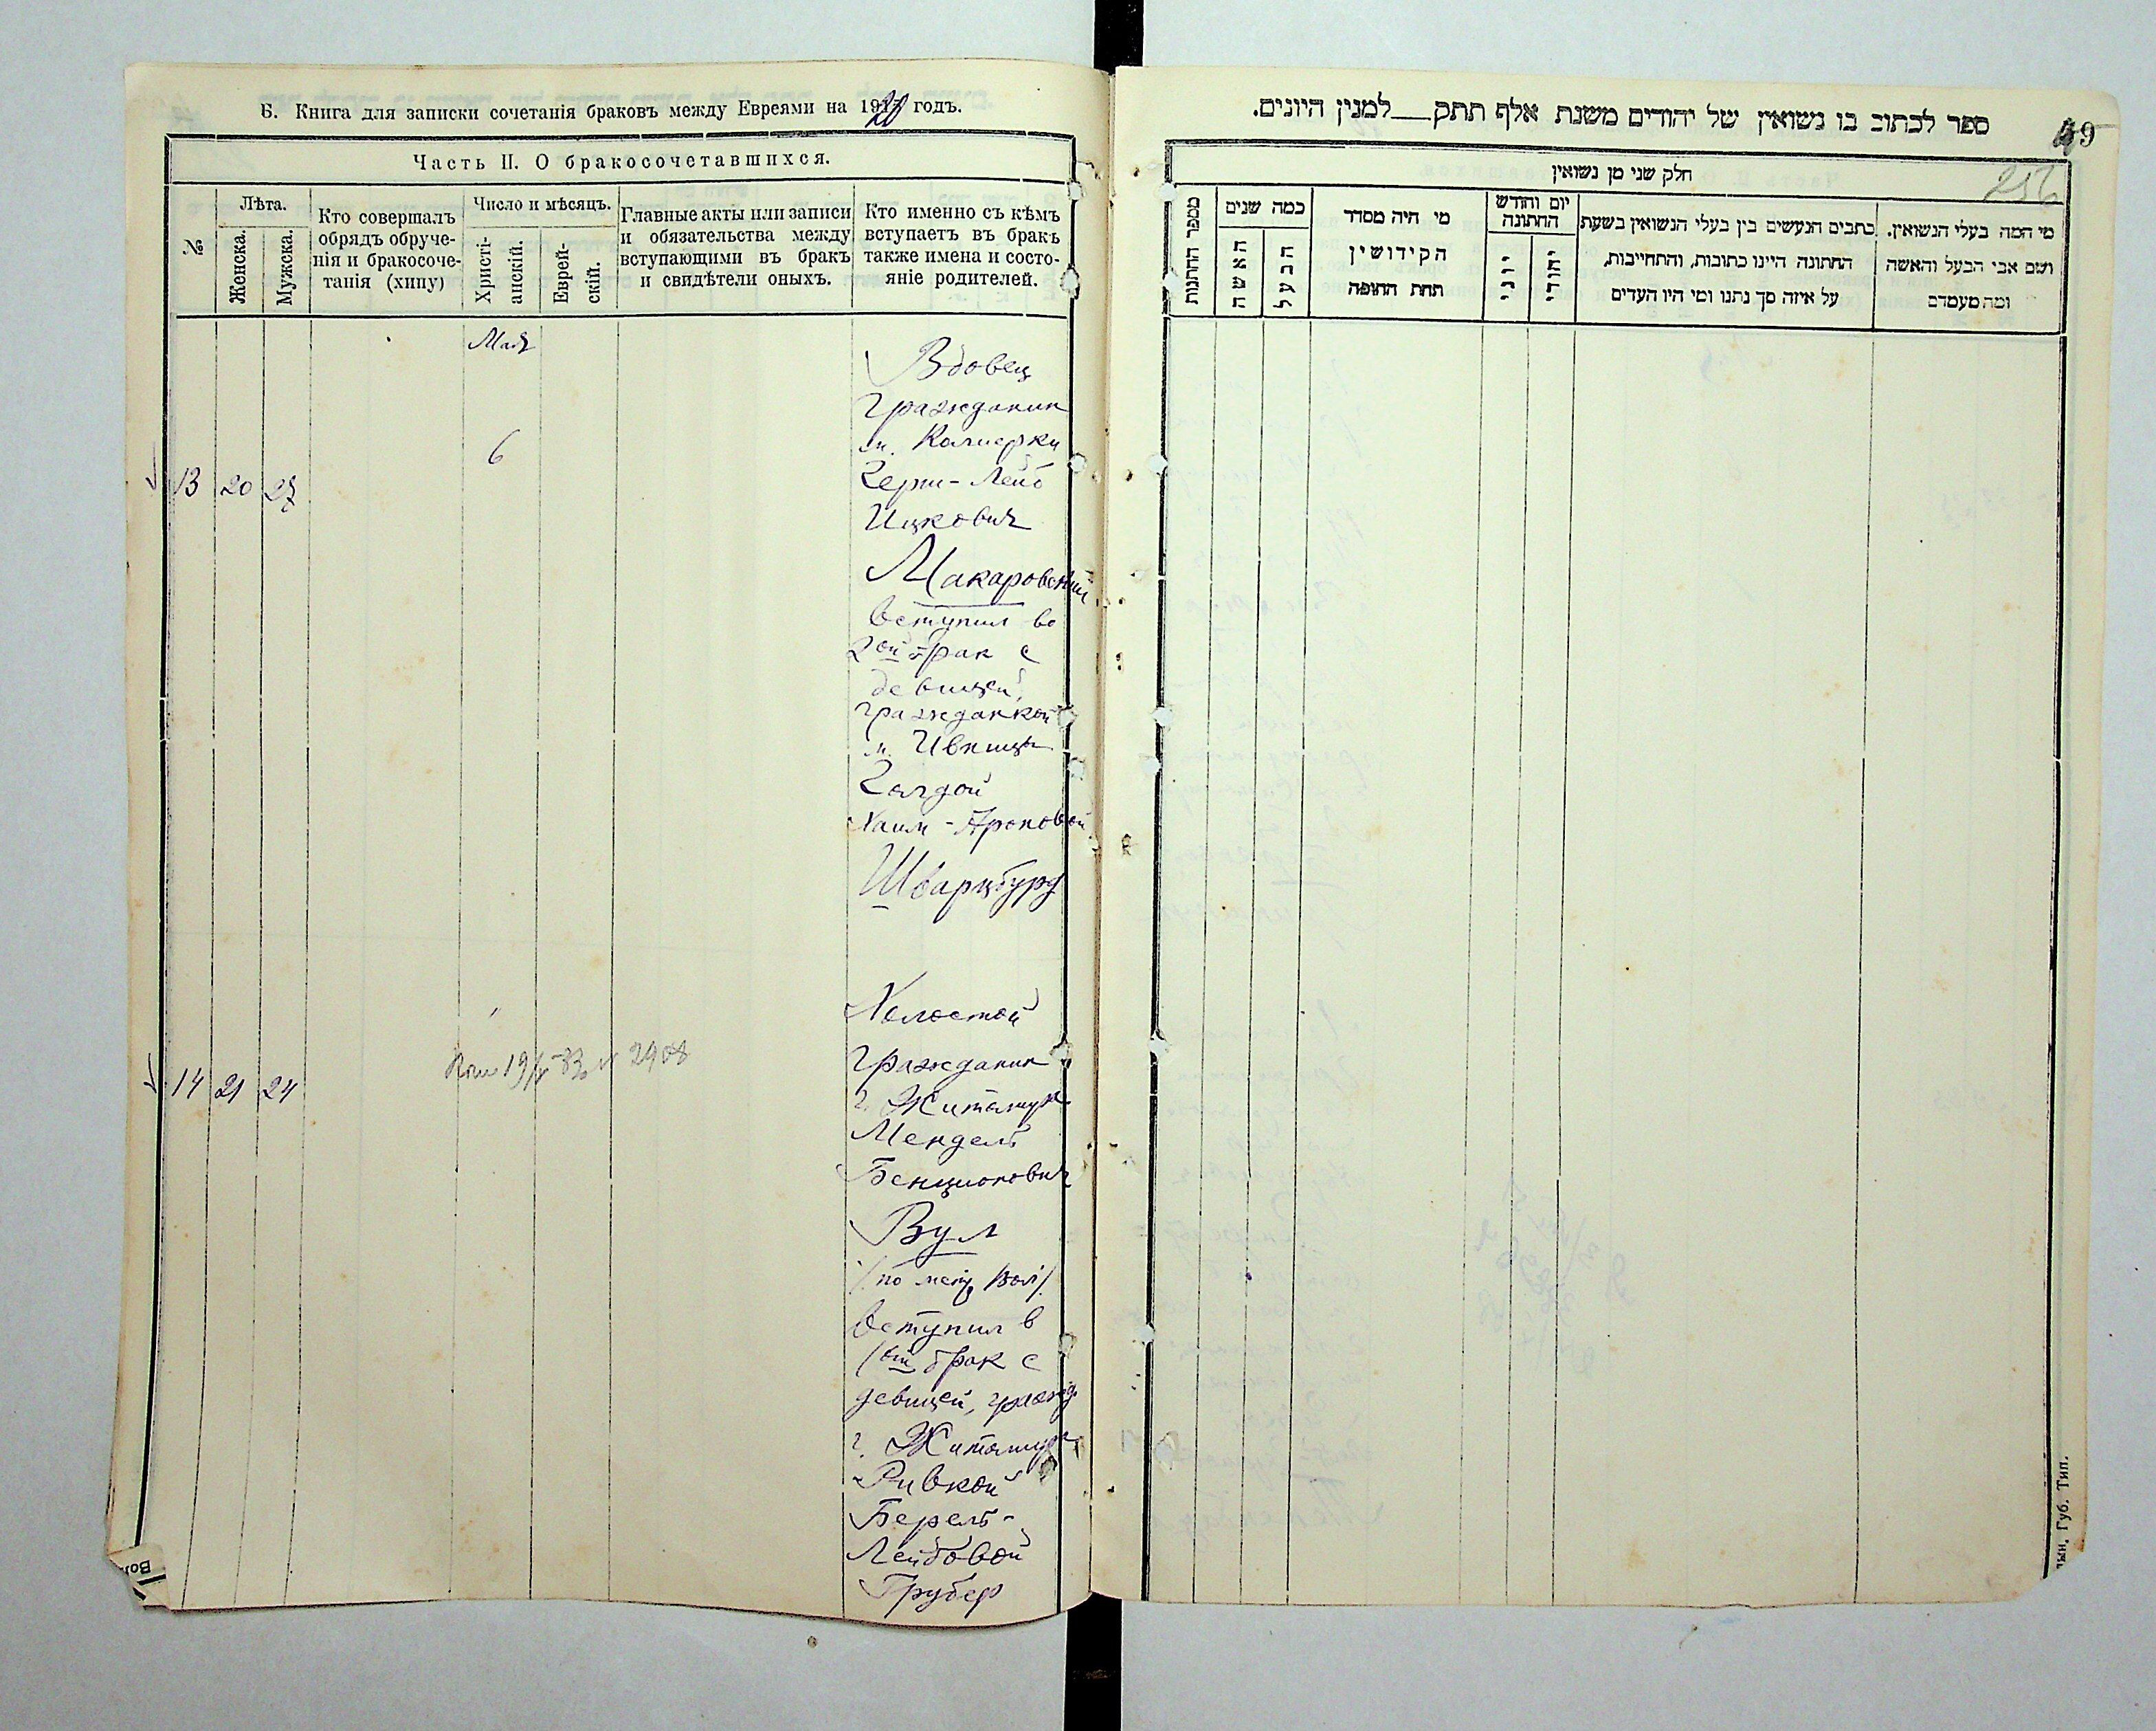 Б. Книга для записки сочетанія браковъ между Евреями на 1920 годъ.
Часть II. О бракосочетавшихся.
№
Лѣта.
Женска.
Мужска.
Кто совершалъ
обрядъ обруче-
нія и бракосоче-
танія (хипу)
Число и мѣсяцъ.
Христі-
анскій.
Еврей-
скій.
Главные акты или записи
и обязательства между
вступающими въ бракъ
и свидѣтели оныхъ.
Кто именно съ кѣмъ
вступаетъ въ бракъ
также имена и состо-
яніе родителей.
13 20 27
6
Вдовец
Гражданин
м.
Герш-Лейб
Ицкович
Макаровский
вступил во
2ой брак с
девицей,
гражданкой
м. Ивницы
Голдой
Хаим-Ароновой
Шварцбурд
14 21 24
2908
Холостой
гражданин
г. Житомира
Мендель
Бенционович
Вул
вступил в
1ый брак с
девицей, гражд
г. Житомира
Ривкой
Берель-
Лейбовой
Грубер
ספר לכתוב בו נשואין של יהודים משנת אלף תתק למנין היונים.
49
256
חלק שני מן נשואין
מספר החתנות
כמה שנים
האשה
הבעל
מי היה מסדר
הקידושין
תחת החופה
יום וחודש
החתונה
יוני
יהודי
כתבים הנעשים בין בעלי הנשואין בשעת
החתונה היינו כתובות, והתחייבות,
על איזה סך נתנו ומי היו העדים
מי המה בעלי הנשואין.
ושם אבי הבעל והאשה
ומה מעמדם
Губ. Тип.